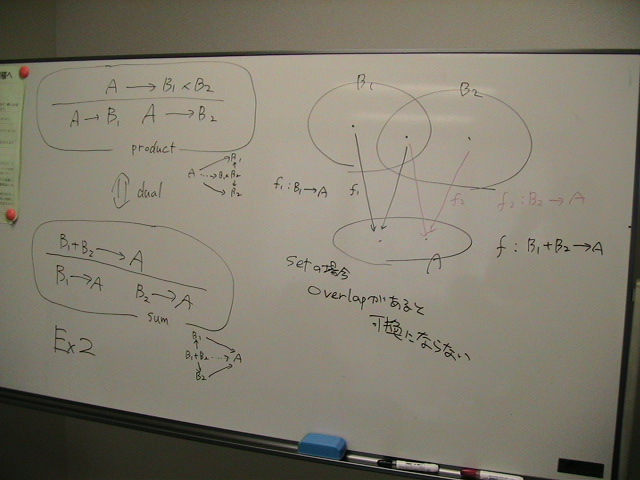 A → B₁×B₂
A → B₁ A → B₂
product
A → B₁
A ⋯→ B₁×B₂
A → B₂
dual
B₁+B₂ → A
B₁ → A B₂ → A
sum
Ex2
B₁ → A
B₁+B₂ ⋯→ A
B₂ → A
B₁ B₂
f₁ : B₁ → A f₁ f₂ f₂ : B₂ → A
A f : B₁+B₂ → A
setの場合
overlapがあると
可換にならない